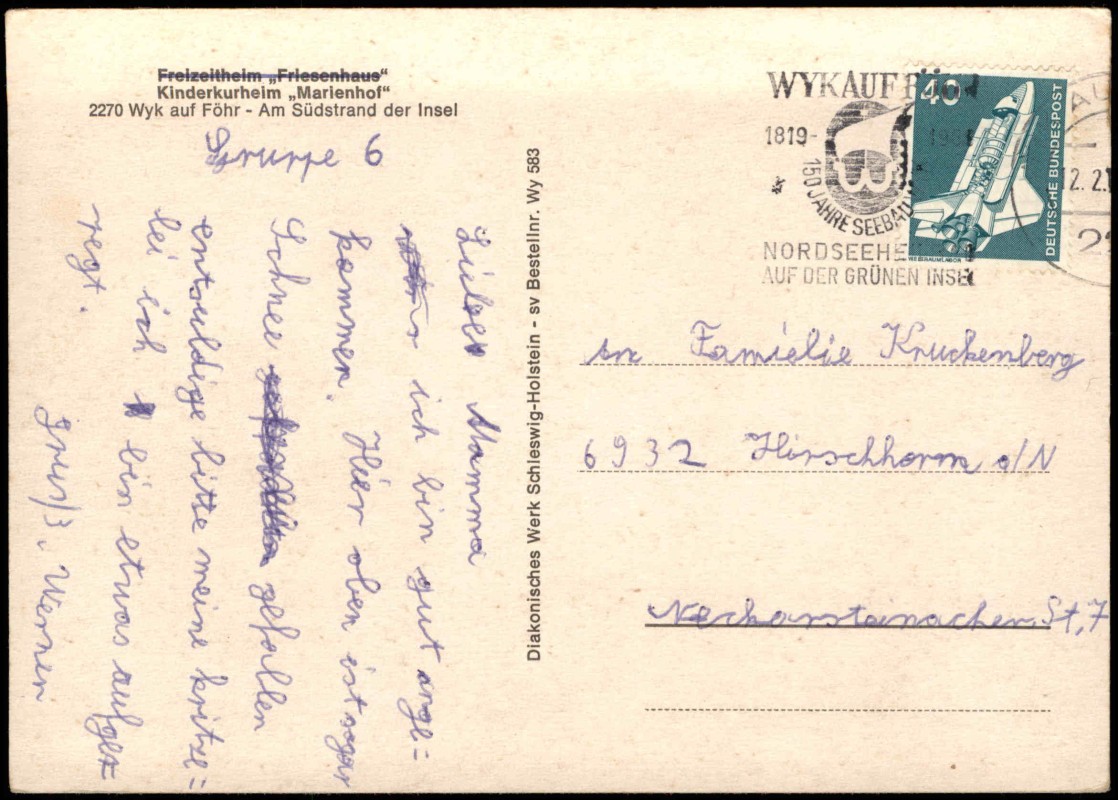 Freizeitheim „Friesenhaus“
Kinderkurheim „Marienhof“
2270 Wyk auf Föhr - Am Südstrand der Insel
Gruppe 6
Liebe Mamma
ich bin gut ange=
kommen. Hier oben ist sogar
Schnee gefallen
entsuldige bitte meine kritze=
lei ich bin etwas aufge
regt.
gruß, Werner
Diakonisches Werk Schleswig-Holstein - sv Bestellnr. Wy 583
WYK AUF
1819-
150 JAHRE SEEBAD
NORDSEEHEI
AUF DER GRÜNEN INSEL
40
DEUTSCHE BUNDESPOST
WELTRAUMLABOR
2.2.
22
an Famielie Kruckenberg
6932 Hirschhorm a/N
Neckarstanacher, St, 7